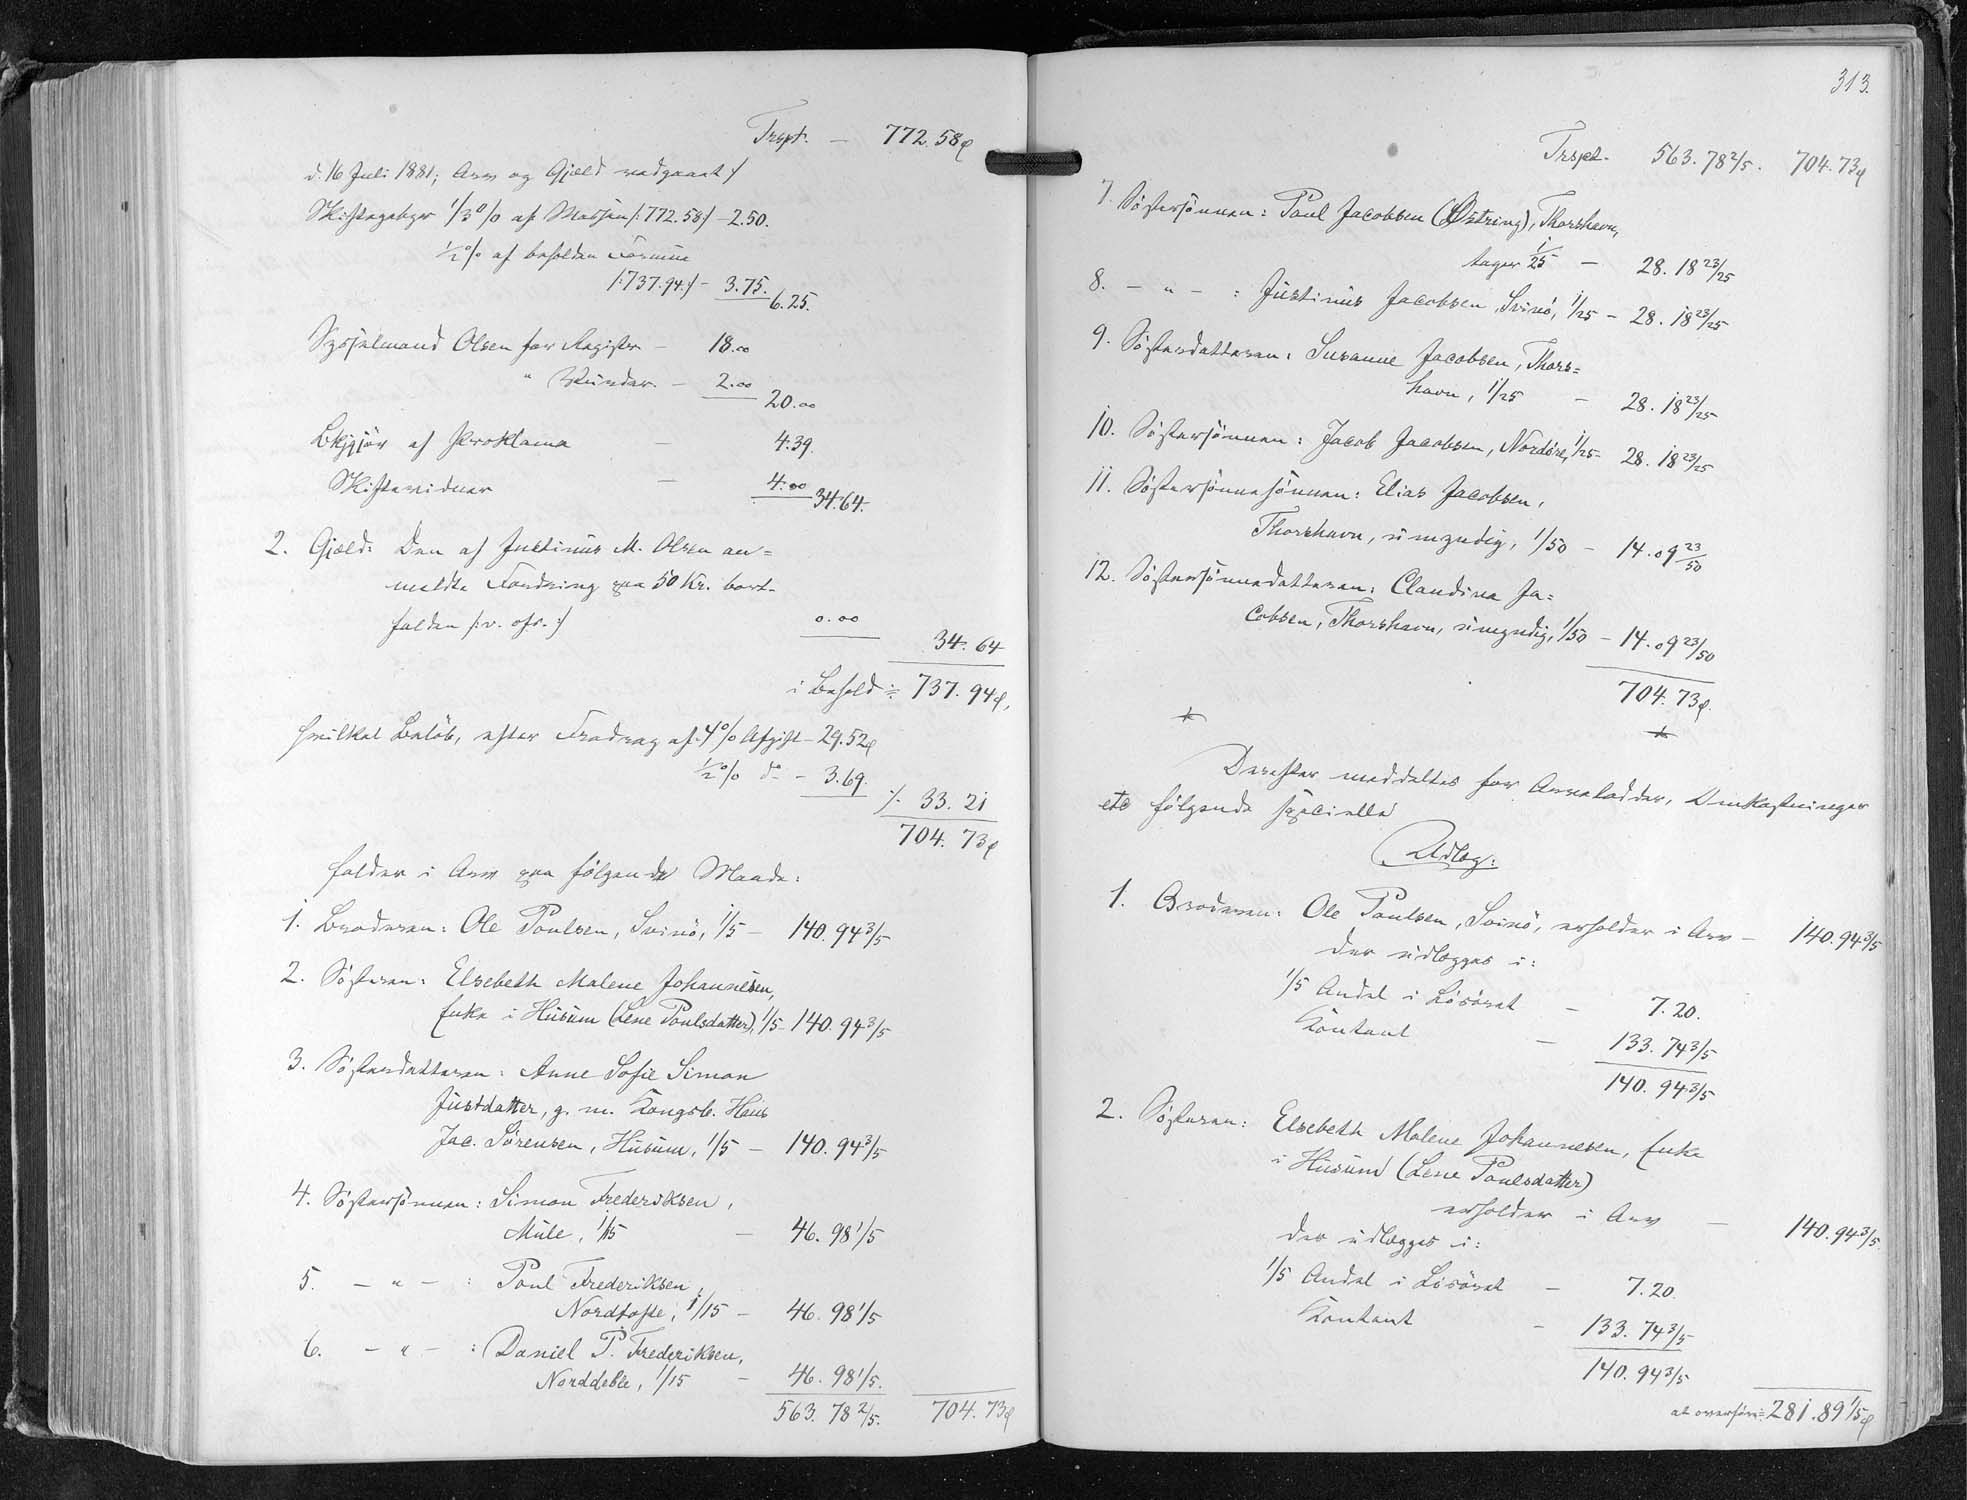 Trspt. — 772.58ø
d. 16 Juli 1881; Arv og Gjæld vedgaaet :/
Skiftegebyr 1/3 % af Massen /:772.58:/ - 2.50.
1/2 % af beholden Formue
/:737.94:/ - 3.75.
6.25.
Sysselmand Olsen for Register — 18.00
" Vurder. — 2.00
20.00
Bkjgjör af Proklama — 4.39.
Skiftevidner — 4.00
34.64.
2. Gjæld: Den af Justinus M. Olsen an=
meldte Fordring paa 50 Kr. bort-
falden /:v. ofr.:/ 0.00
34.64
i Behold = 737.94ø,
hvilket Beløb, efter Fradrag af: 4% Afgift - 29.52ø
1/2 % do - 3.69.
./. 33.21
704.73ø
falder i Arv paa følgende Maade:
1. Broderen: Ole Poulsen, Svinö, 1/5 — 140.94 3/5
2. Søsteren: Elsebeth Malene Johannesen,
Enke i Húsum (Lene Poulsdatter), 1/5 - 140.94 3/5
3. Søsterdatteren: Anne Sofie Simon
Justdatter, g. m. Kongsb. Hans
Jac. Sörensen, Húsum, 1/5 — 140.94 3/5
4. Søstersönnen: Simon Frederiksen,
Mule, 1/15 — 46.98 1/5
5. — " — : Poul Frederiksen,
Nordtofte, 1/15 — 46.98 1/5
6. — " — : Daniel P. Frederiksen,
Norddeble, 1/15 — 46.98 1/5.
563.78 2/5. 704.73ø
313.
Trspt. 563.78 2/5. 704.73ø
7. Søstersönnen: Poul Jacobsen (Østring), Thorshavn,
tager 1/25 — 28.18 23/25
8. — " — : Justinus Jacobsen, Svinö, 1/25 — 28.18 23/25
9. Søsterdatteren: Susanne Jacobsen, Thors=
havn, 1/25 — 28.18 23/25
10. Søstersönnen: Jacob Jacobsen, Nordöre, 1/25 - 28.18 23/25
11. Søstersönnesönnen: Elias Jacobsen,
Thorshavn, umyndig, 1/50 — 14.09 23/50
12. Søstersönnedatteren: Claudine Ja=
cobsen, Thorshavn, umyndig, 1/50 — 14.09 23/50
704.73ø.
Derefter meddeltes for Arvelodder, Omkostninger
etc følgende specielle
Udlæg:
1. Broderen: Ole Poulsen, Svinö, erholder i Arv — 140.94 3/5
der udlægges i:
1/5 Andel i Løsöret — 7.20.
Kontant — 133.74 3/5
140.94 3/5
2. Søsteren: Elsebeth Malene Johannesen, Enke
i Húsum (Lene Poulsdatter)
erholder i Arv — 140.94 3/5
der udlægges i:
1/5 Andel i Løsöret — 7.20.
Kontant — 133.74 3/5
140.94 3/5
at overføre = 281.89 1/5ø